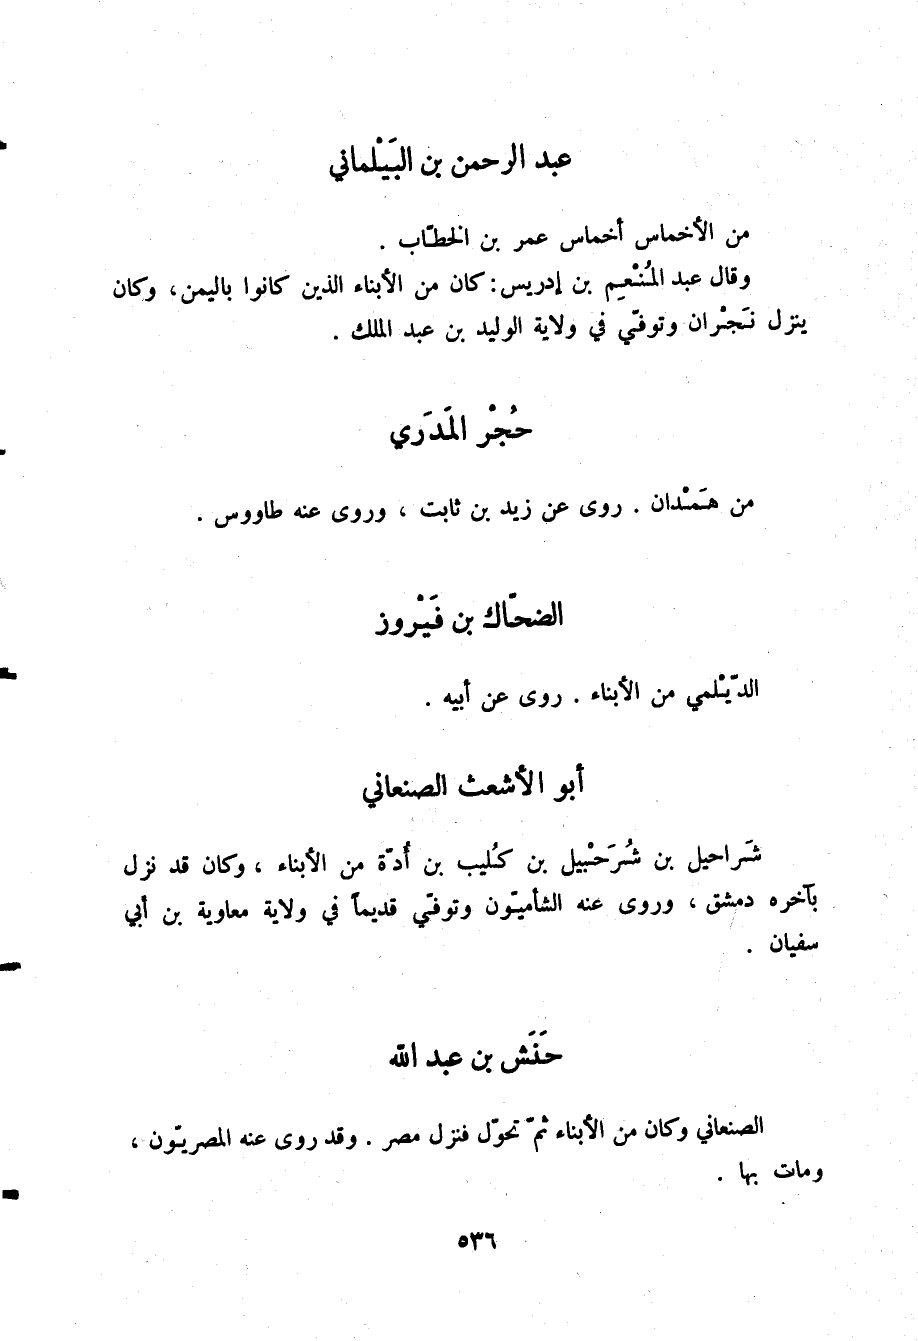 عبد الرحمن بن البَيْلماني
من الأخماس أخماس عمر بن الخطّاب .
وقال عبد المُنْعِم بن إدريس: كان من الأبناء الذين كانوا باليمن، وكان
ينزل نَجْران وتوفّي في ولاية الوليد بن عبد الملك .
حُجْر المَدَري
من هَمْدان . روى عن زيد بن ثابت ، وروى عنه طاووس .
الضحّاك بن فَيْروز
الدّيْلمي من الأبناء . روى عن أبيه .
أبو الأشعث الصنعاني
شَراحيل بن شُرَحْبيل بن كُليب بن أُدّة من الأبناء ، وكان قد نزل
بآخره دمشق ، وروى عنه الشأميّون وتوفّي قديماً في ولاية معاوية بن أبي
سفيان .
حَنَش بن عبد الله
الصنعاني وكان من الأبناء ثمّ تحوّل فنزل مصر . وقد روى عنه المصريّون ،
ومات بها .
٥٣٦